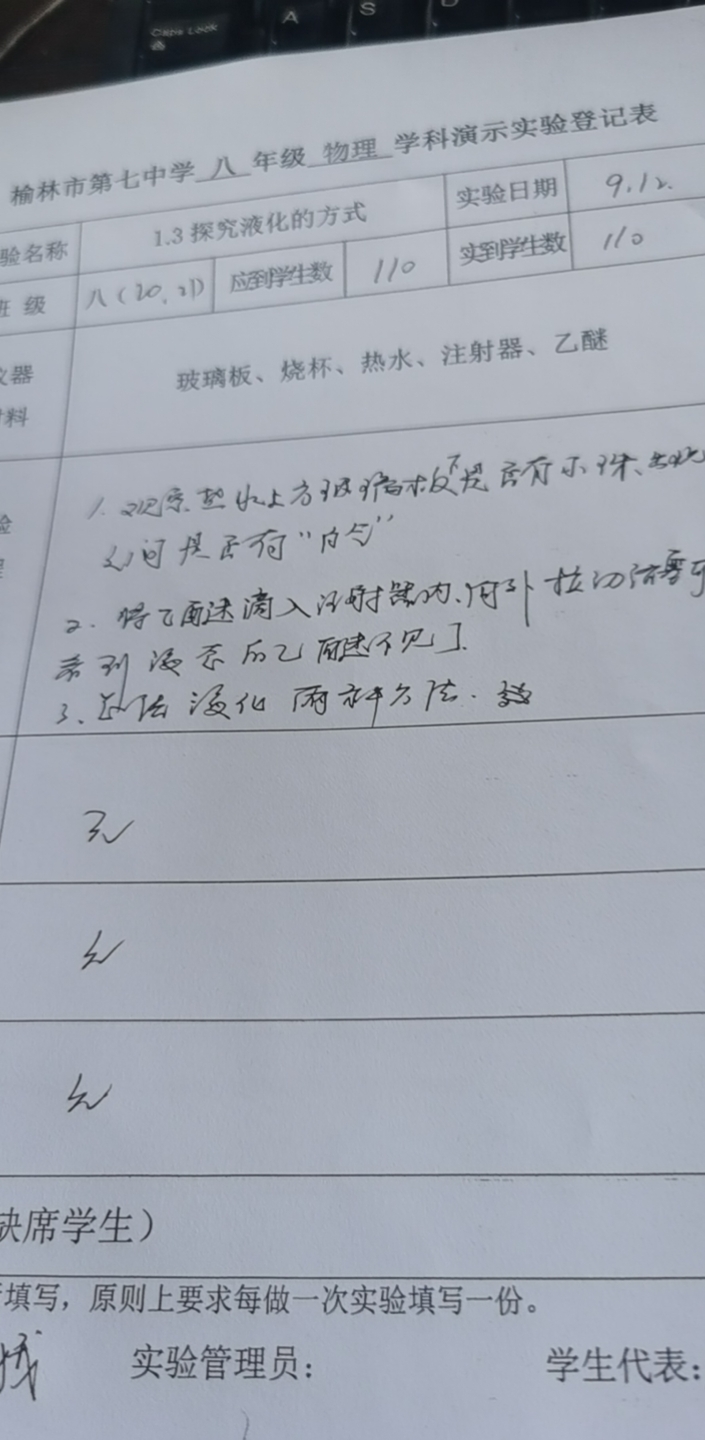 Caps Lock
A
S
榆林市第七中学 八 年级 物理 学科演示实验登记表
验名称 1.3 探究液化的方式 实验日期 9.12.
班 级 八(20,21) 应到学生数 110 实到学生数 110
仪器
材料
玻璃板、烧杯、热水、注射器、乙醚
验
1. 观察热水上方玻璃板下是否有小珠、出现
是否有
2. 将乙醚滴入注射器内、向外拉动活塞
看到液态的乙醚不见了.
3. 总结液化两种方法.
无
无
无
缺席学生)
填写,原则上要求每做一次实验填写一份。
实验管理员: 学生代表: